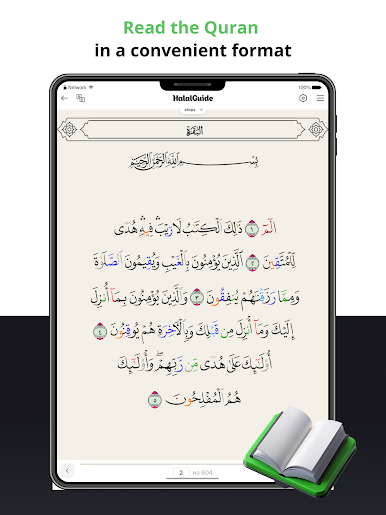 Read the Quran
in a convenient format
Network
100%
HalalGuide
البقرة
بِسْمِ اللَّهِ الرَّحْمَٰنِ الرَّحِيمِ
الٓمٓ ۝١ ذَٰلِكَ الْكِتَٰبُ لَا رَيْبَ ۛ فِيهِ ۛ هُدًى
لِّلْمُتَّقِينَ ۝٢ الَّذِينَ يُؤْمِنُونَ بِالْغَيْبِ وَيُقِيمُونَ الصَّلَوٰةَ
وَمِمَّا رَزَقْنَٰهُمْ يُنفِقُونَ ۝٣ وَالَّذِينَ يُؤْمِنُونَ بِمَآ أُنزِلَ
إِلَيْكَ وَمَآ أُنزِلَ مِن قَبْلِكَ وَبِالْءَاخِرَةِ هُمْ يُوقِنُونَ ۝٤
أُو۟لَٰٓئِكَ عَلَىٰ هُدًى مِّن رَّبِّهِمْ ۖ وَأُو۟لَٰٓئِكَ
هُمُ الْمُفْلِحُونَ ۝٥
2 из 604